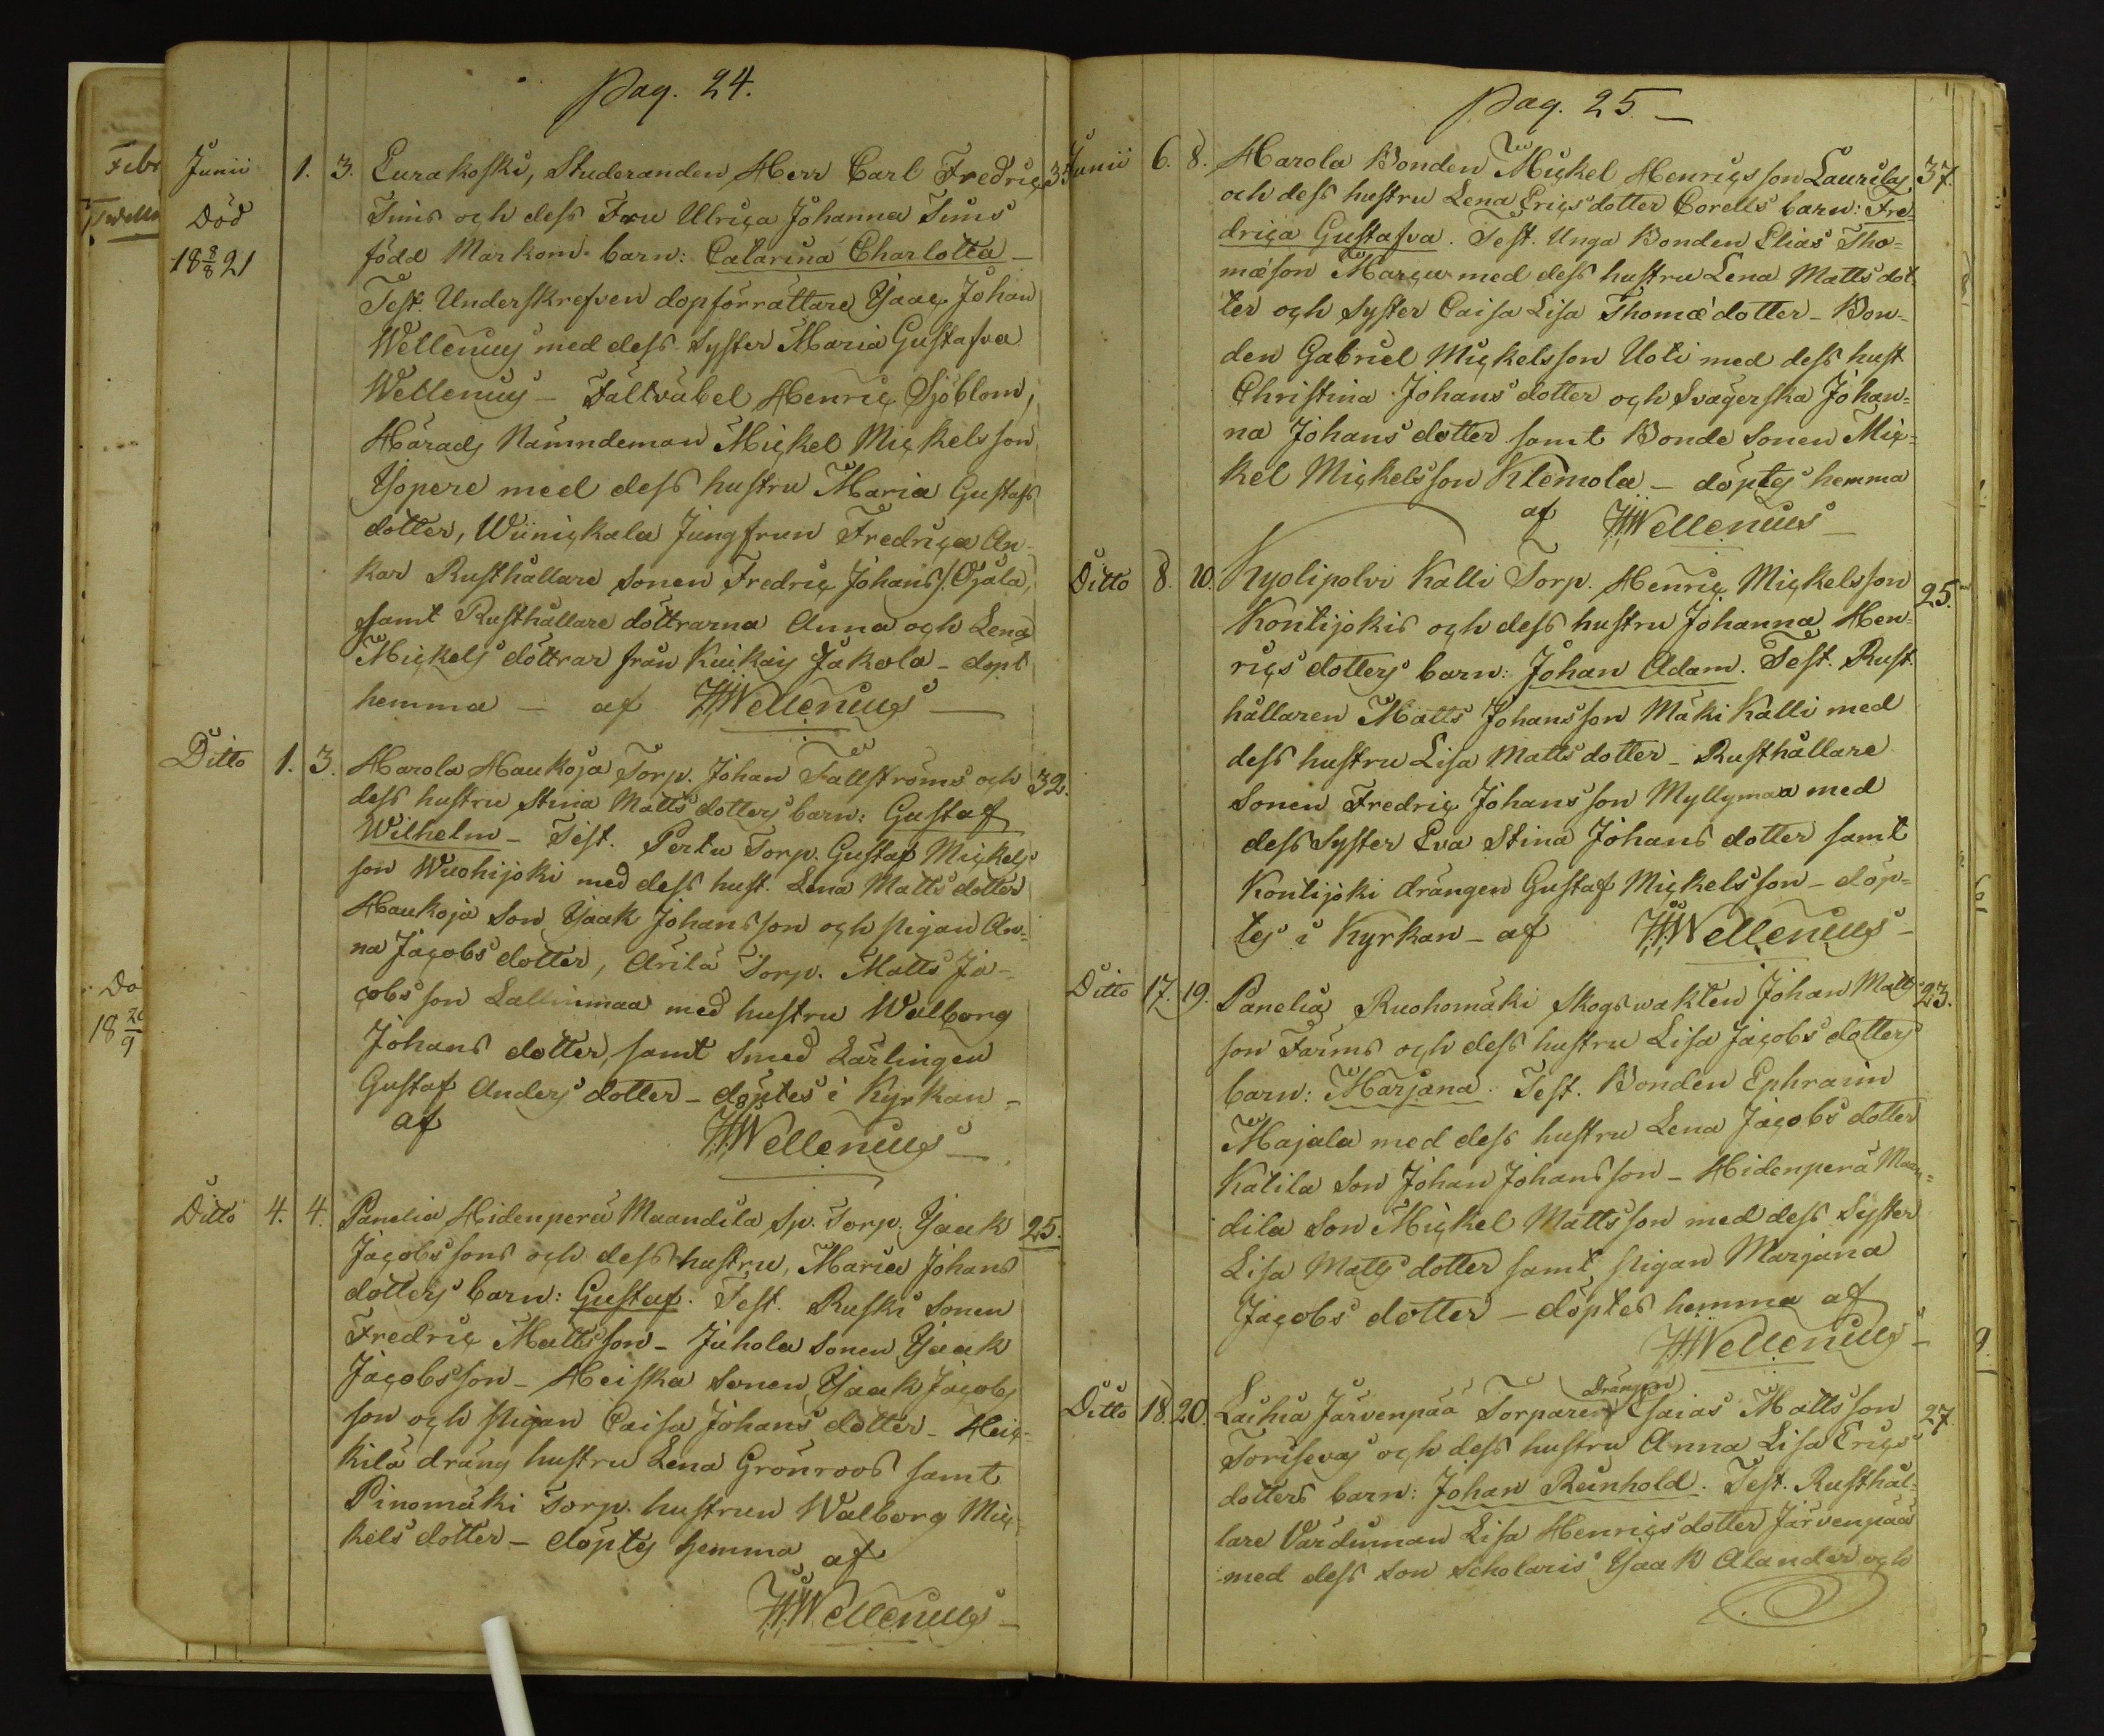 Pag. 24.
Junii 1. 3. Eurakoski, Studeranden Herr Carl Fredric
Död Tims och dess Fru Ulrica Johanna Tims
18 8/8 21 född Markom. barn: Catarina Charlotta –
Test. Underskrefven dopförrättare Isaac Johan
Wellenius med dess Syster Maria Gustafva
Wellenius – Fältväbel Henric Sjöblom,
Härads Nämndeman Mickel Mickelsson
Yopere med dess hustru Maria Gustafs
dotter, Wiinickala Jungfrun Fredrica An-
kar Rusthållare Sonen Fredric Johans s. Ojala,
samt Rusthållare döttrarna Anna och Lena
Mickels döttrar från Kuikais Jakola – döpt
hemma – af IJWellenius –
Ditto 1. 3. Harola Haukoja Torp. Johan Fallströms och 32.
dess hustru Stina Matts dotters barn: Gustaf
Wilhelm – Test. Pertu Torp. Gustaf Mickels
son Wuohijoki med dess hust. Lena Matts dotter
Haukoja Son Isaak Johansson och pigan An-
na Jacobs dotter, Arilä Torp. Matts Ja-
cobs son Lallinmaa med hustru Walborg
Johans dotter, samt Smed Lärlingen
Gustaf Anders dotter – döptes i Kyrkan –
af IJWellenius –
Ditto 4. 4. Panelia Hidenperä Maandila Sp. Torp. Isaak 25.
Jacobssons och dess hustru, Maria Johans
dotters barn: Gustaf. Test. Ruski Sonen
Fredric Mattsson – Juhola Sonen Isaak
Jacobsson – Heiska Sonen Isaak Jacobs
son och pigan Caisa Johans dotter – Heic-
kilä dräng hustru Lena Grönroos samt
Pinomäki Torp. hustrun Walborg Mic-
kels dotter – döptes hemma af
IJWellenius –
Pag. 25. –
Junii 6. 8. Harola Bonden Mickel Henrics son Laurilas 37.
och dess hustru Lena Erics dotter Corells barn: Fre-
drica Gustafva. Test. Unga Bonden Elias Tho-
mæson Marcu med dess hustru Lena Matts dot-
ter och Syster Caisa Lisa Thomæ dotter – Bon-
den Gabriel Mickelsson Uoti med dess hust
Christina Johans dotter och Svägerska Johan-
na Johans dotter samt Bonde Sonen Mic-
kel Mickelsson Klemola – döptes hemma
af IJWellenius –
Ditto 8. 10. Kyolipolvi Kalli Torp. Henric Mickelsson 25.
Kontijokis och dess hustru Johanna Hen-
rics dotters barn: Johan Adam. Test. Rust
hållaren Matts Johansson Mäki Kalli med
dess hustru Lisa Matts dotter – Rusthållare
Sonen Fredric Johansson Myllymaa med
dess Syster Eva Stina Johans dotter samt
Kontijoki drängen Gustaf Mickelsson – döp-
tes i Kyrkan – af IJWellenius –
Ditto 17. 19. Panelia Ruohomäki Skogswakten Johan Matts 23.
son Farms och dess hustru Lisa Jacobs dotters
barn: Marjana. Test. Bonden Ephraim
Majala med dess hustru Lena Jacobs dotter
Katila Son Johan Johansson – Hidenperä Maan-
dila Son Mickel Mattsson med dess Syster
Lisa Matts dotter samt pigan Marjana
Jacobs dotter – döptes hemma af
IJWellenius –
Drängen
Ditto 18. 20. Laihia Järvenpää Torparen Esaias Mattsson 27.
Torisevas och dess hustru Anna Lisa Erics
dotters barn: Johan Reinhold. Test. Rusthål-
lare Värdinnan Lisa Henrics dotter Järvenpää
med dess Son Scholaris Isaak Alander och